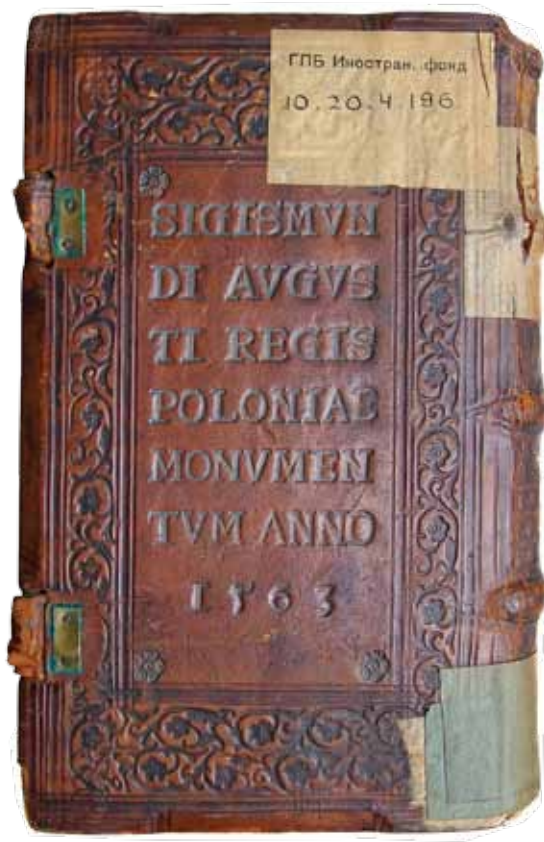 ГПБ Иностран. фонд
10.20.4.196
SIGISMVN
DI AVGVS
TI REGIS
POLONIAE
MONVMEN
TVM ANNO
1563